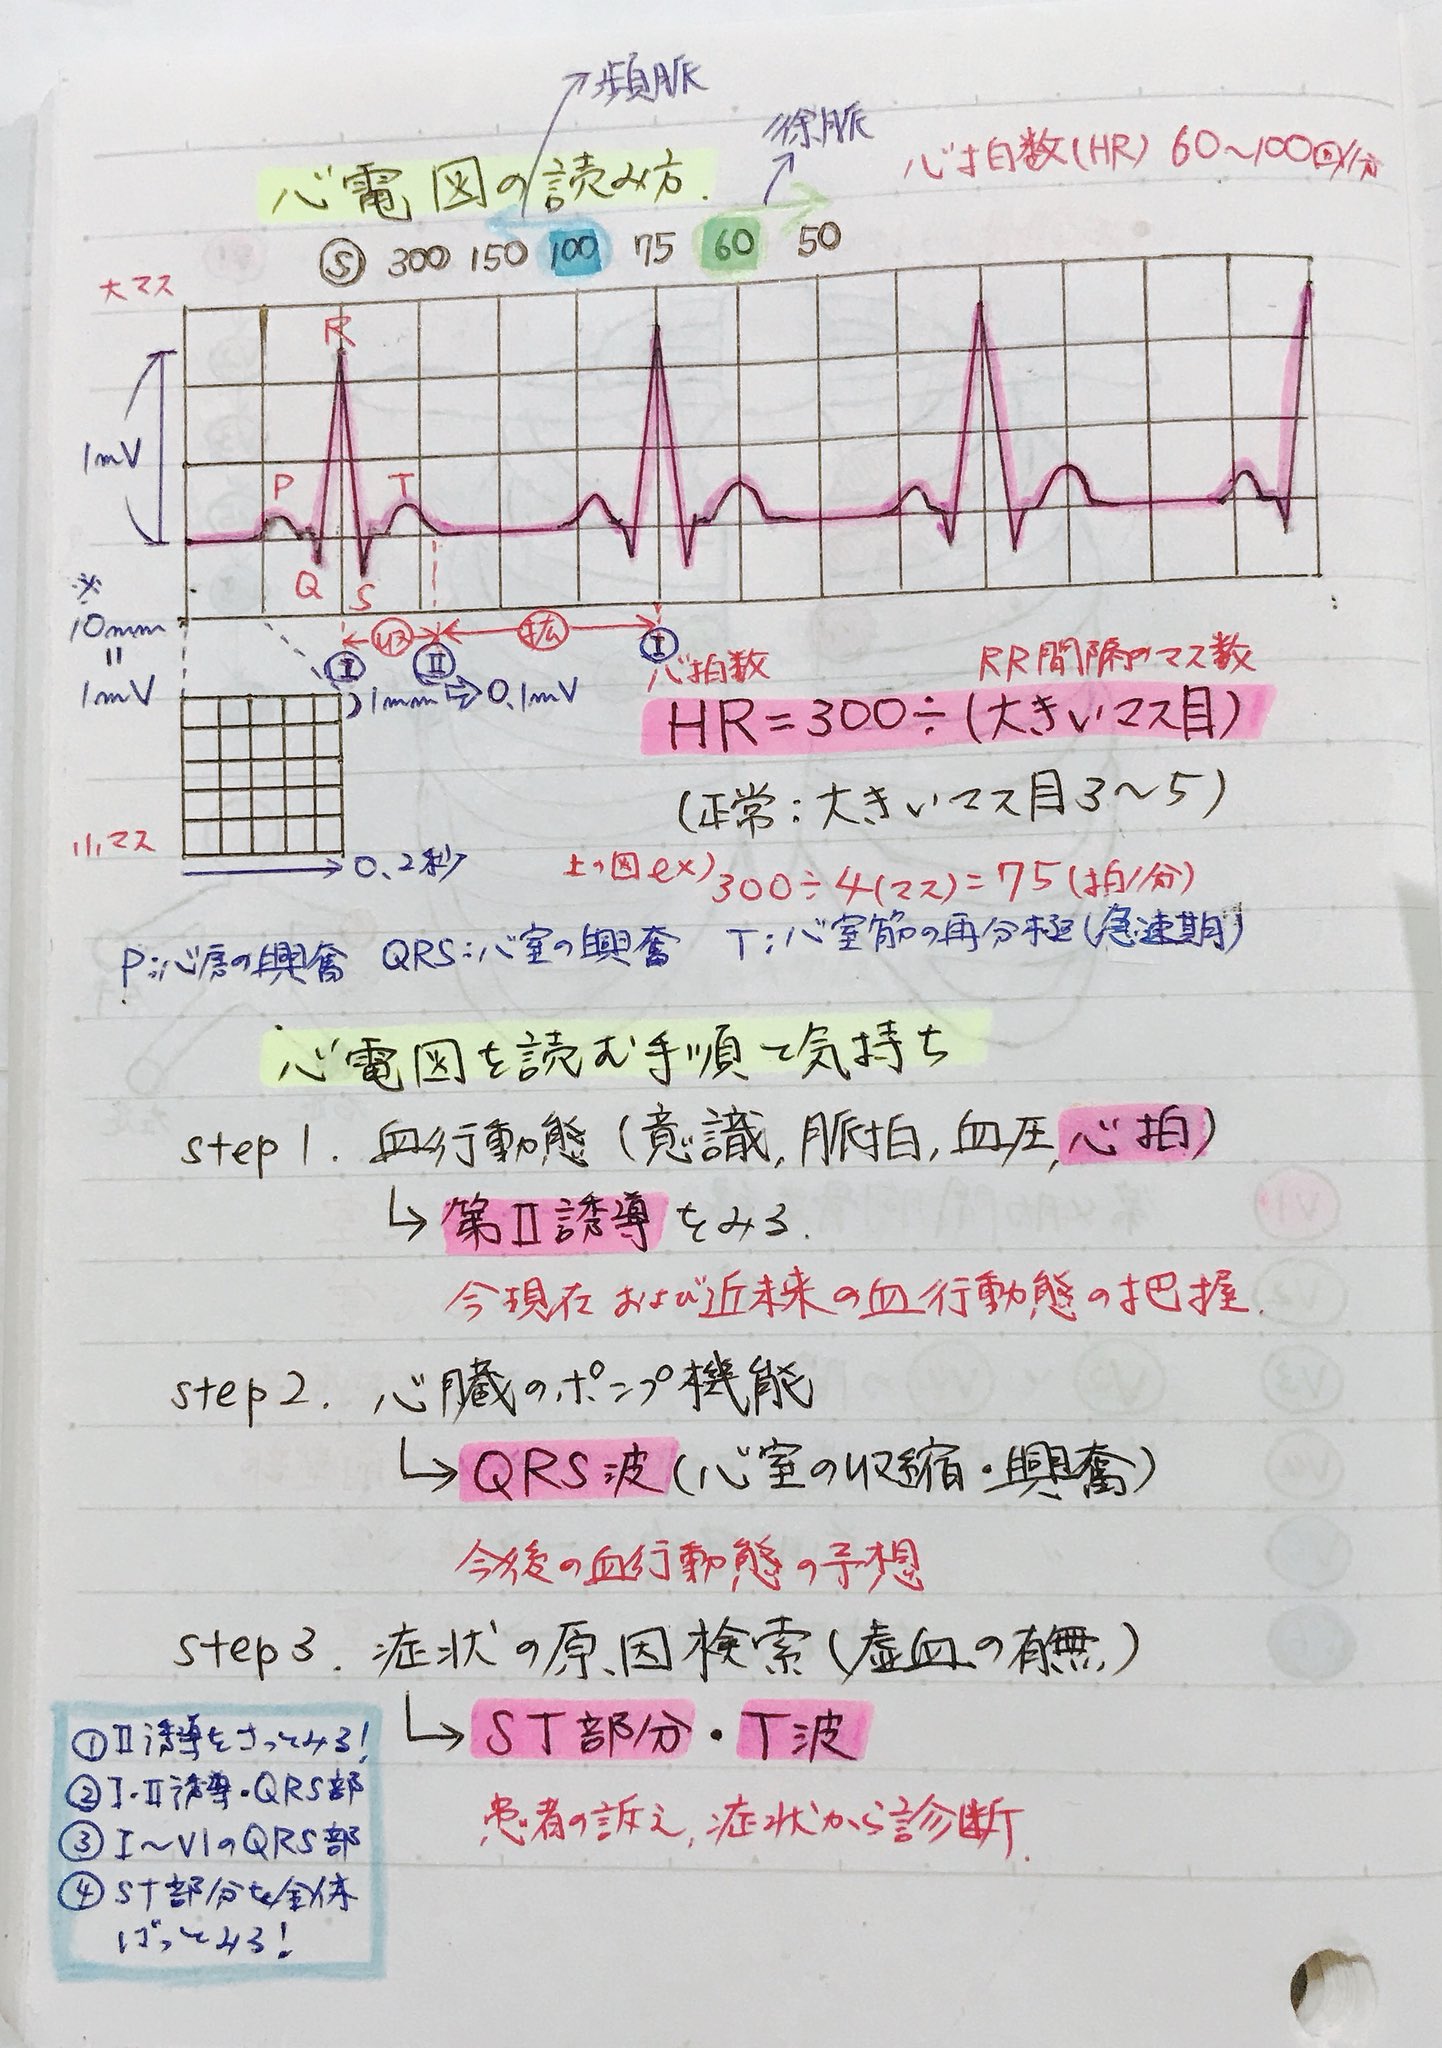 頻脈
徐脈
心拍数(HR) 60〜100回/分
心電図の読み方.
Ⓢ 300 150 100 75 60 50
大マス
R
1mV
P
T
Q
S
※
10mm
=
1mV
収
拡
I
II
I
1mm⇨0.1mV
心拍数
RR間隔のマス数
HR=300÷(大きいマス目)
(正常:大きいマス目3〜5)
小マス
0.2秒
上の図ex) 300÷4(マス)=75(拍/分)
P:心房の興奮 QRS:心室の興奮 T:心室筋の再分極(急速期)
心電図を読む手順て気持ち
step1. 血行動態(意識,脈拍,血圧,心拍)
↳第II誘導をみる.
今現在および近未来の血行動態の把握.
step2. 心臓のポンプ機能
↳QRS波(心室の収縮・興奮)
今後の血行動態の予想
step3. 症状の原因検索(虚血の有無)
↳ST部分・T波
患者の訴え,症状から診断.
①II誘導をさっとみる!
②I・II誘導・QRS部
③I〜V1のQRS部
④ST部分を全体
ばっとみる!